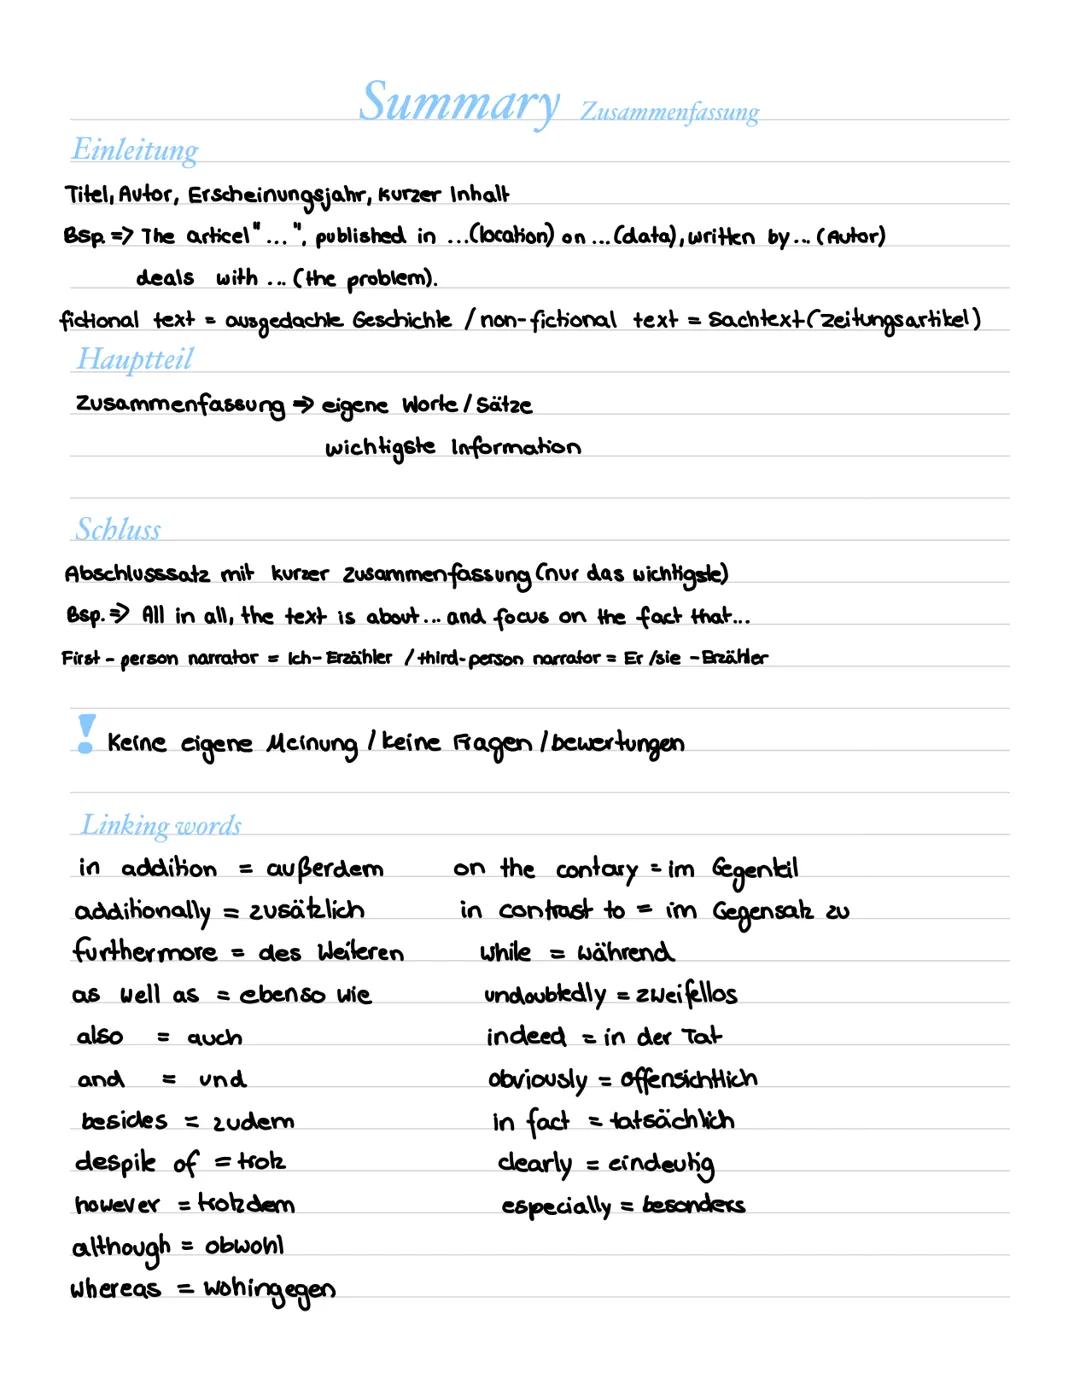 Summary Zusammenfassung
Einleitung
Titel, Autor, Erscheinungsjahr, kurzer Inhalt
Bsp. => The articel "...", published in ...(location) on ... (data), written by ... (Autor)
deals with ... (the problem).
fictional text = ausgedachte Geschichte / non-fictional text = Sachtext (Zeitungsartikel)
Hauptteil
Zusammenfassung => eigene Worte / Sätze
wichtigste Information
Schluss
Abschlusssatz mit kurzer Zusammenfassung (nur das wichtigste)
Bsp. => All in all, the text is about ... and focus on the fact that...
First-person narrator = Ich-Erzähler / third-person narrator = Er/sie-Erzähler
! Keine eigene Meinung / keine Fragen / bewertungen
Linking words
in addition = außerdem
additionally = zusätzlich
furthermore = des Weiteren
as well as = ebenso wie
also = auch
and = und
besides = zudem
despite of = trotz
however = trotzdem
although = obwohl
whereas = wohingegen
on the contary = im Gegenteil
in contrast to = im Gegensatz zu
while = während
undoubtedly = zweifellos
indeed = in der Tat
obviously = offensichtlich
in fact = tatsächlich
clearly = eindeutig
especially = besonders